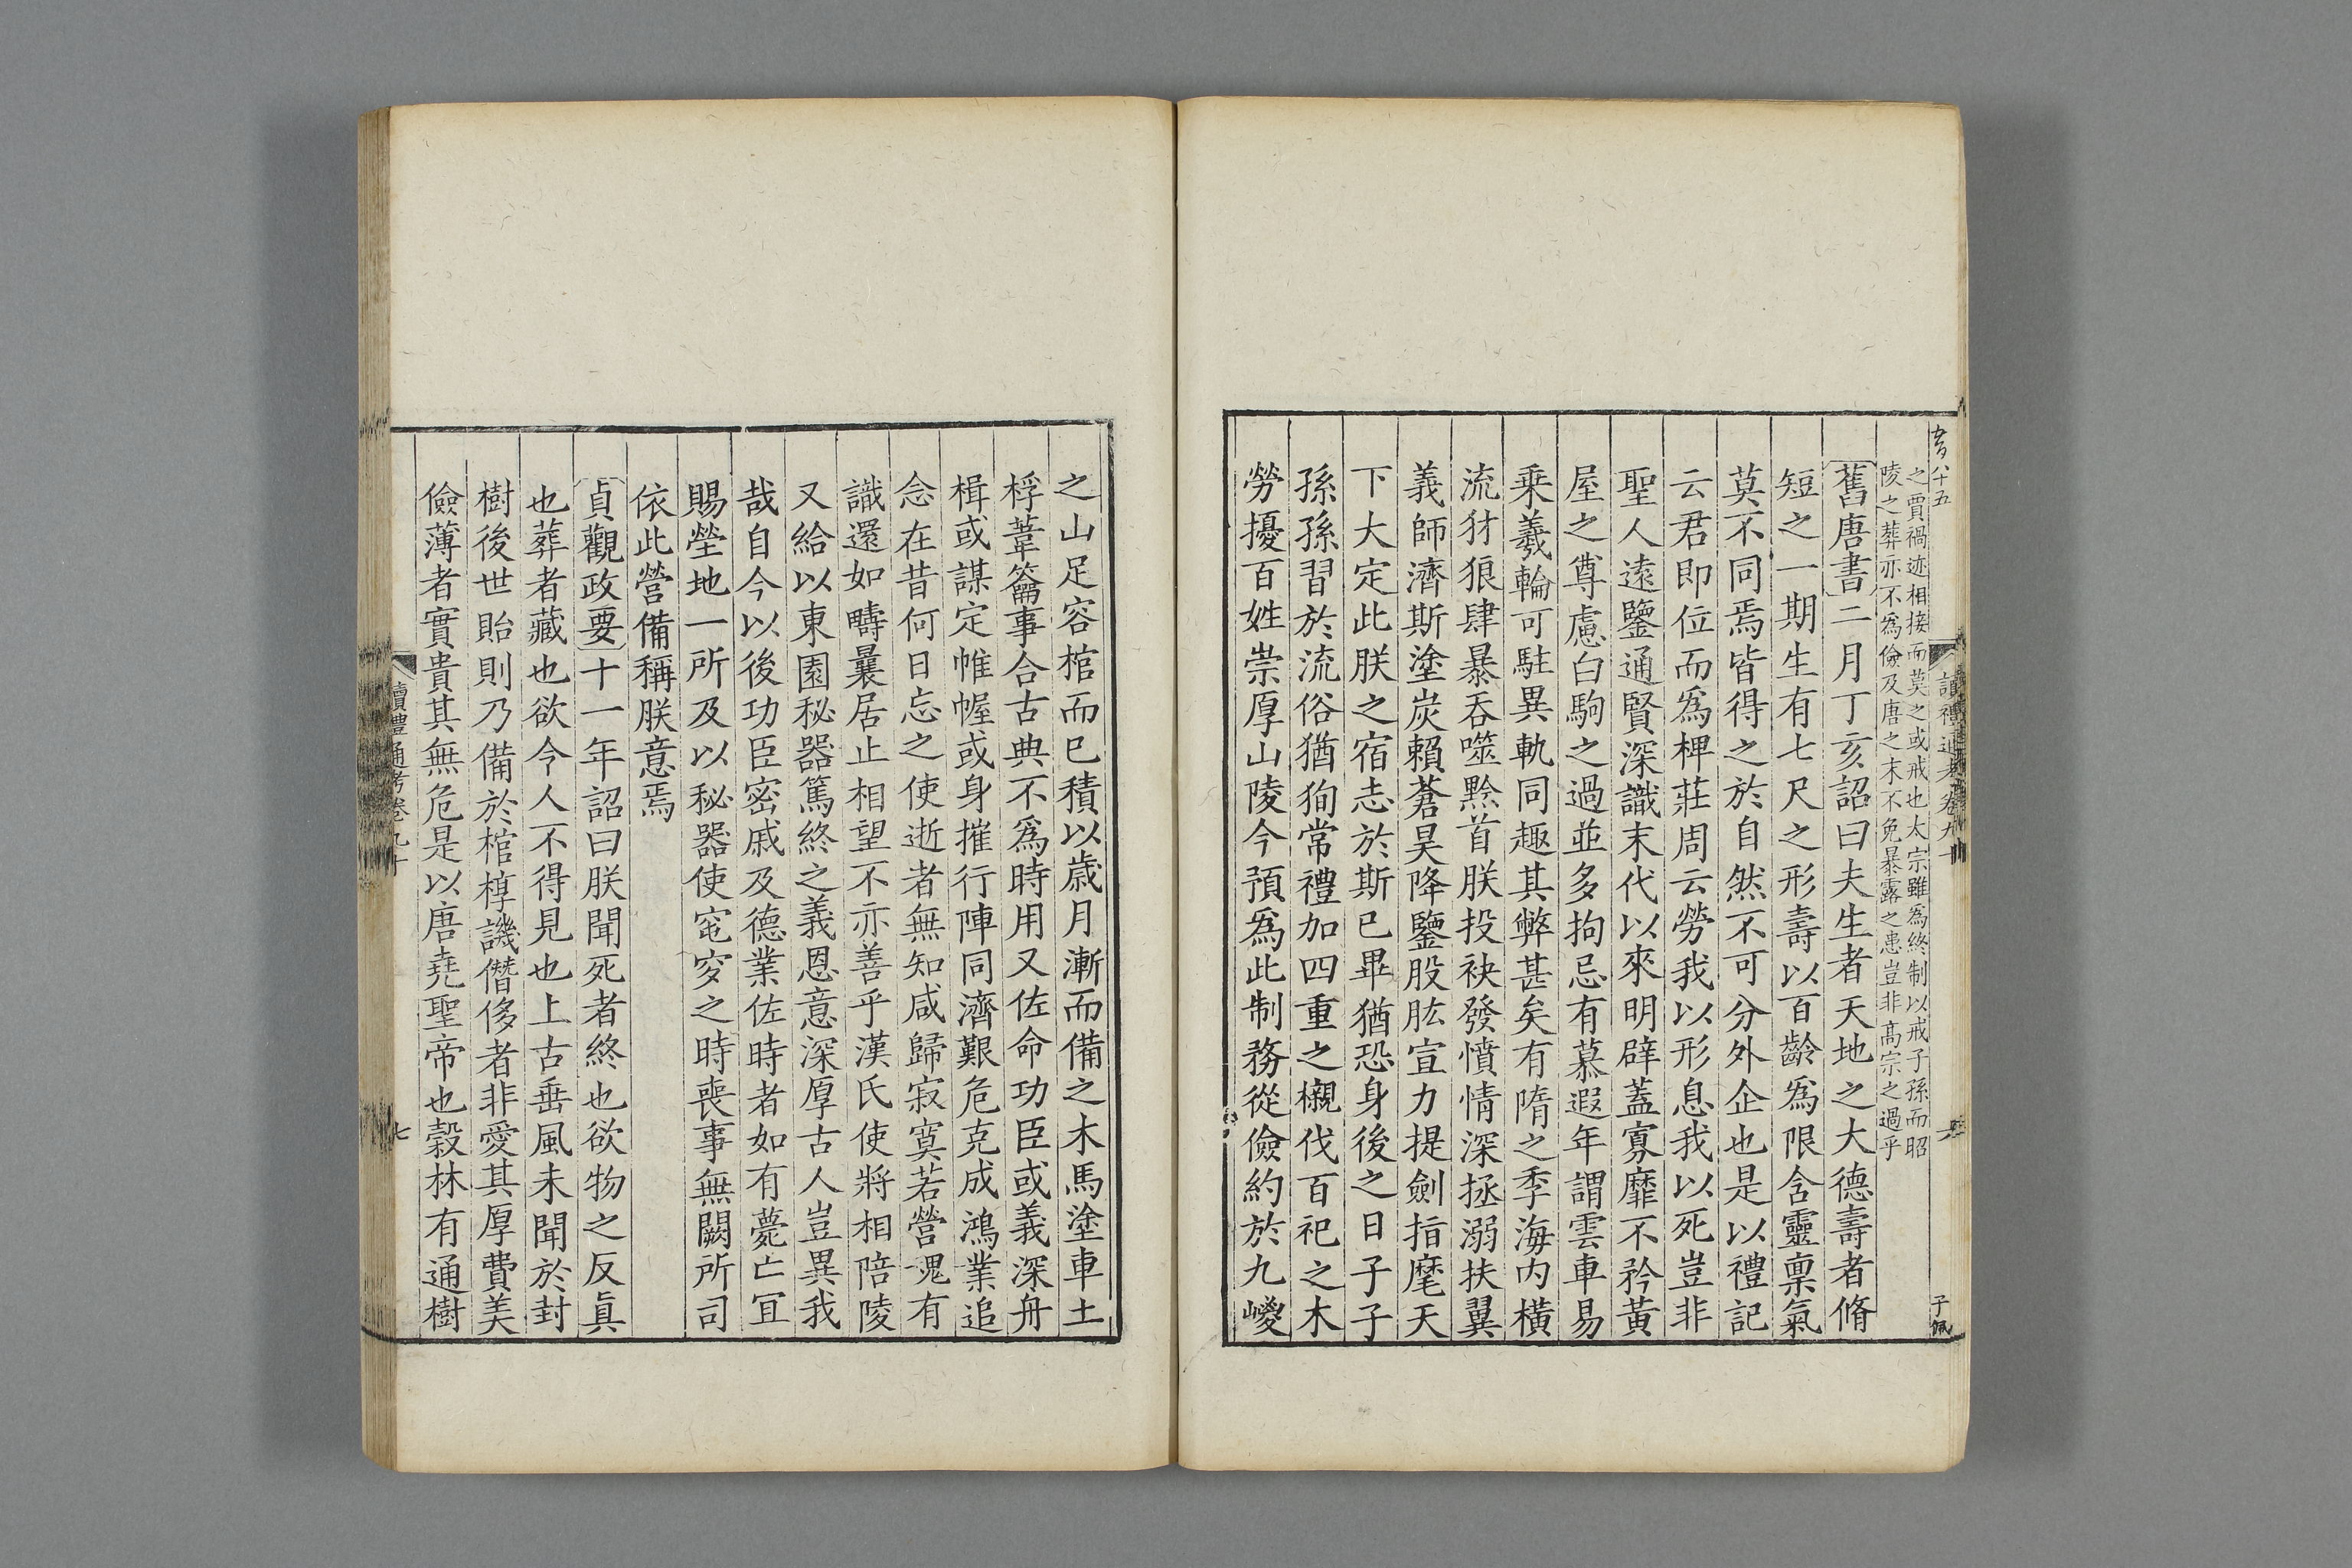 之賈禍迹相接而莫之或戒也太宗雖爲終制以戒子孫而昭
陵之葬亦不爲儉及唐之末不免暴露之患豈非高宗之過乎
舊唐書二月丁亥詔曰夫生者天地之大德壽者脩
短之一期生有七尺之形壽以百齡爲限含靈禀氣
莫不同焉皆得之於自然不可分外企也是以禮記
云君即位而爲椑莊周云勞我以形息我以死豈非
聖人遠鑒通賢深識末代以來明辟蓋寡靡不矜黃
屋之尊慮白駒之過並多拘忌有慕遐年謂雲車易
乗羲輪可駐異軌同趣其弊甚矣有隋之季海内橫
流犲狼肆暴吞噬黔首朕投袂發憤情深拯溺扶翼
義師濟斯塗炭賴蒼昊降鑒股肱宣力提劍指麾天
下大定此朕之宿志於斯已畢猶恐身後之日子子
孫孫習於流俗猶狥常禮加四重之櫬伐百祀之木
勞擾百姓崇厚山陵今預爲此制務從儉約於九嵕
之山足容棺而已積以歲月漸而備之木馬塗車土
桴葦籥事合古典不爲時用又佐命功臣或義深舟
楫或謀定帷幄或身摧行陣同濟艱危克成鴻業追
念在昔何日忘之使逝者無知咸歸寂寞若營魂有
識還如疇曩居止相望不亦善乎漢氏使將相陪陵
又給以東園秘器篤終之義恩意深厚古人豈異我
哉自今以後功臣密戚及德業佐時者如有薨亡冝
賜塋地一所及以秘器使窀穸之時喪事無闕所司
依此營備稱朕意焉
貞觀政要十一年詔曰朕聞死者終也欲物之反眞
也葬者藏也欲令人不得見也上古垂風未聞於封
樹後世貽則乃備於棺椁譏僭侈者非愛其厚費美
儉薄者實貴其無危是以唐堯聖帝也穀林有通樹
讀禮通考卷九十
七